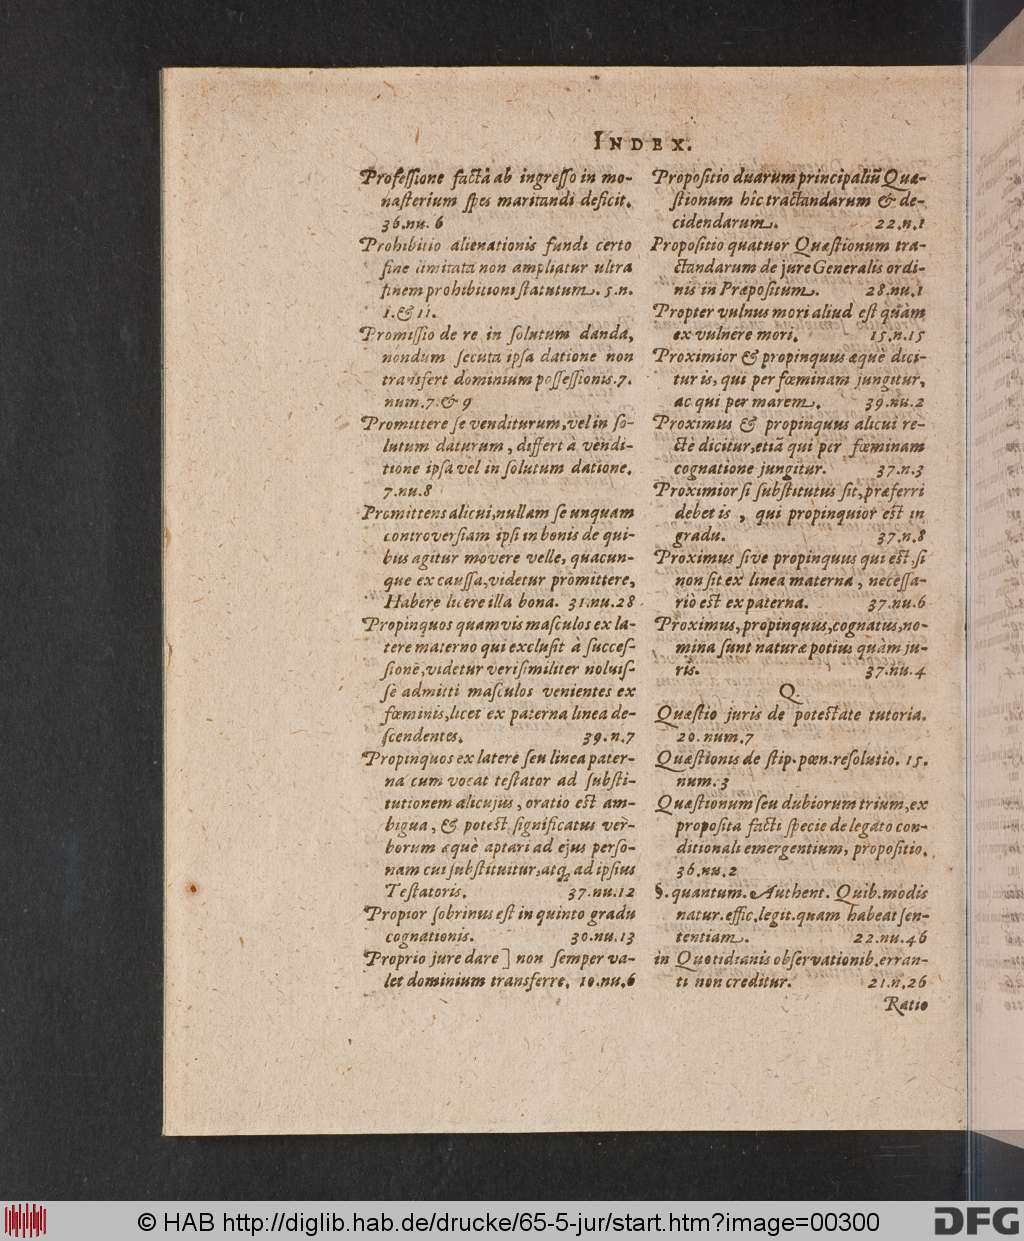 INDEX.
Professione factâ ab ingresso in mo-
nasterium spes maritandi deficit.
36.nu. 6
Prohibitio alienationis fundi certo
fine limitata non ampliatur ultra
finem prohibitioni statutum. 5.n.
1.& 11.
Promissio de re in solutum danda,
nondum secuta ipsa datione non
transfert dominium possessionis.7.
num.7.& 9
Promittere se venditurum,vel in so-
lutum daturum, differt à vendi-
tione ipsâ vel in solutum datione.
7.nu.8
Promittens alicui,nullam se unquam
controversiam ipsi in bonis de qui-
bus agitur movere velle, quacun-
que ex caussa,videtur promittere,
Habere licere illa bona. 31.nu.28
Propinquos quamvis masculos ex la-
tere materno qui exclusit à succes-
sionē,videtur verisimiliter noluis-
se admitti masculos venientes ex
fœminis,licet ex paterna linea de-
scendentes. 39.n.7
Propinquos ex latere seu linea pater-
na cum vocat testator ad substi-
tutionem alicujus, oratio est am-
bigua, & potest significatus ver-
borum æquè aptari ad ejus perso-
nam cui substituitur,atq; ad ipsius
Testatoris. 37.nu.12
Propior sobrinus est in quinto gradu
cognationis. 30.nu.13
Proprio jure dare] non semper va-
let dominium transferre. 10.nu.6
Propositio duarum principaliū Quæ-
stionum hîc tractandarum & de-
cidendarum. 22.n.1
Propositio quatuor Quæstionum tra-
ctandarum de jure Generalis ordi-
nis in Præpositum. 28.nu.1
Propter vulnus mori aliud est quàm
ex vulnere mori. 15.n.15
Proximior & propinquus æquè dici-
tur is, qui per fœminam jungitur,
ac qui per marem. 39.nu.2
Proximus & propinquus alicui re-
ctè dicitur,etiā qui per fœminam
cognatione jungitur. 37.n.3
Proximior si substitutus sit,præferri
debet is, qui propinquior est in
gradu. 37.n.8
Proximus sive propinquus qui est,si
non sit ex linea materna, necessa-
riò est ex paterna. 37.nu.6
Proximus,propinquus,cognatus,no-
mina sunt naturæ potius quàm ju-
ris. 37.nu.4
Q.
Quæstio juris de potestate tutoria.
20.num.7
Quæstionis de stip.pœn.resolutio. 15.
num.3
Quæstionum seu dubiorum trium,ex
proposita facti specie de legato con-
ditionali emergentium, propositio.
36.nu.2
§.quantum.Authent. Quib.modis
natur.effic.legit.quam habeat sen-
tentiam. 22.nu.46
in Quotidianis observationib.erran-
ti non creditur. 21.n.26
Ratio
© HAB http://diglib.hab.de/drucke/65-5-jur/start.htm?image=00300
DFG